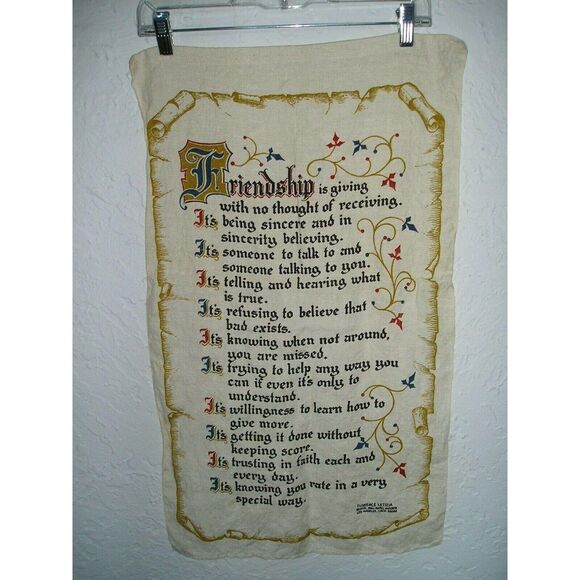 Friendship is giving
with no thought of receiving.
It's being sincere and in
sincerity believing.
It's someone to talk to and
someone talking to you.
It's telling and hearing what
is true.
It's refusing to believe that
bad exists.
It's knowing when not around,
you are missed.
It's trying to help any way you
can if even it's only to
understand.
It's willingness to learn how to
give more.
It's getting it done without
keeping score.
It's trusting in faith each and
every day.
It's knowing you rate in a very
special way.
FLORENCE LETIZIA